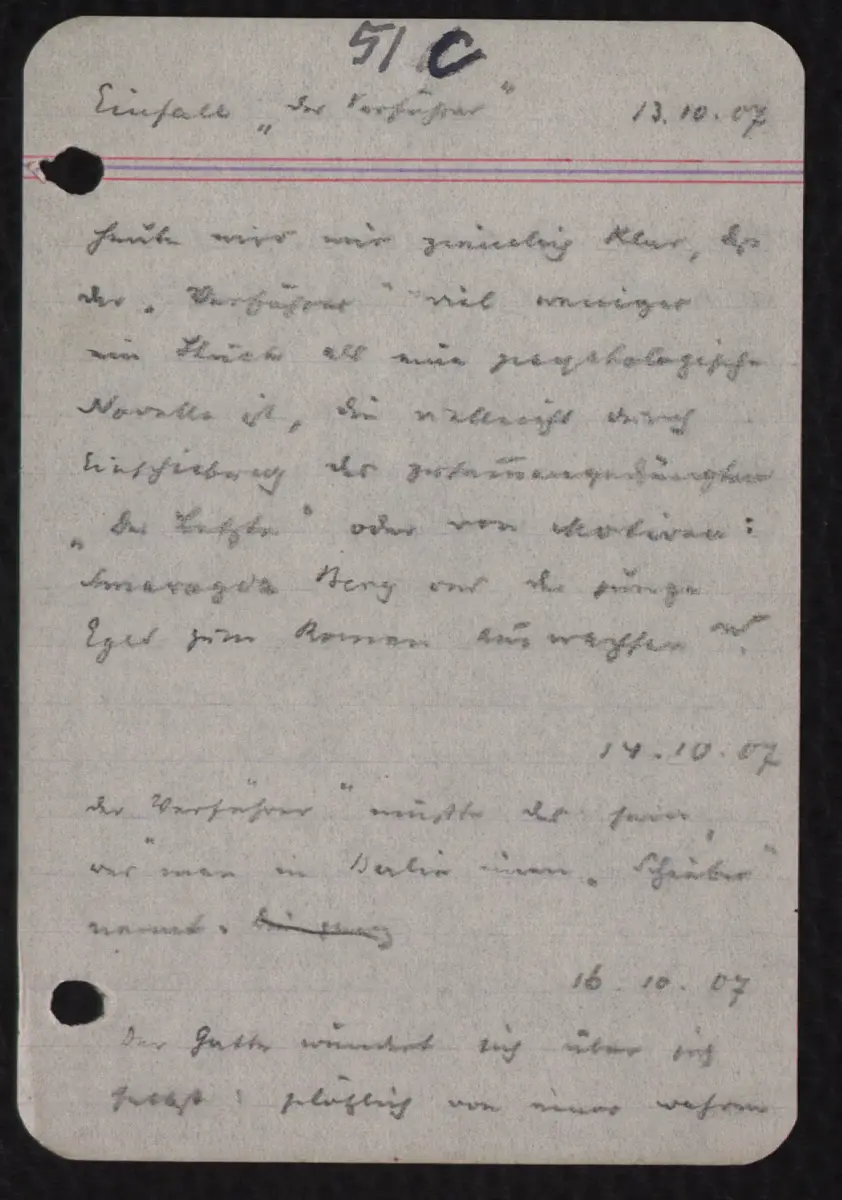 51 C
Einfall „Der Verführer“ 13.10.07
Heute wird mir ziemlich klar, dß
der „Verführer“ viel weniger
ein Stück als eine psychologische
Novelle ist, die vielleicht durch
Einschiebung des zusammengedrängten
„Der Letzte“ oder von Motiven:
Smaragda Berg und der junge
Eger zum Roman auswachsen
14.10.07
der „Verführer“ müßte das sein,
was man in Berlin einen „Schieber“
nennt.
16.10.07
Der Gatte wundert sich über sich
selbst: plötzlich von einer wahren